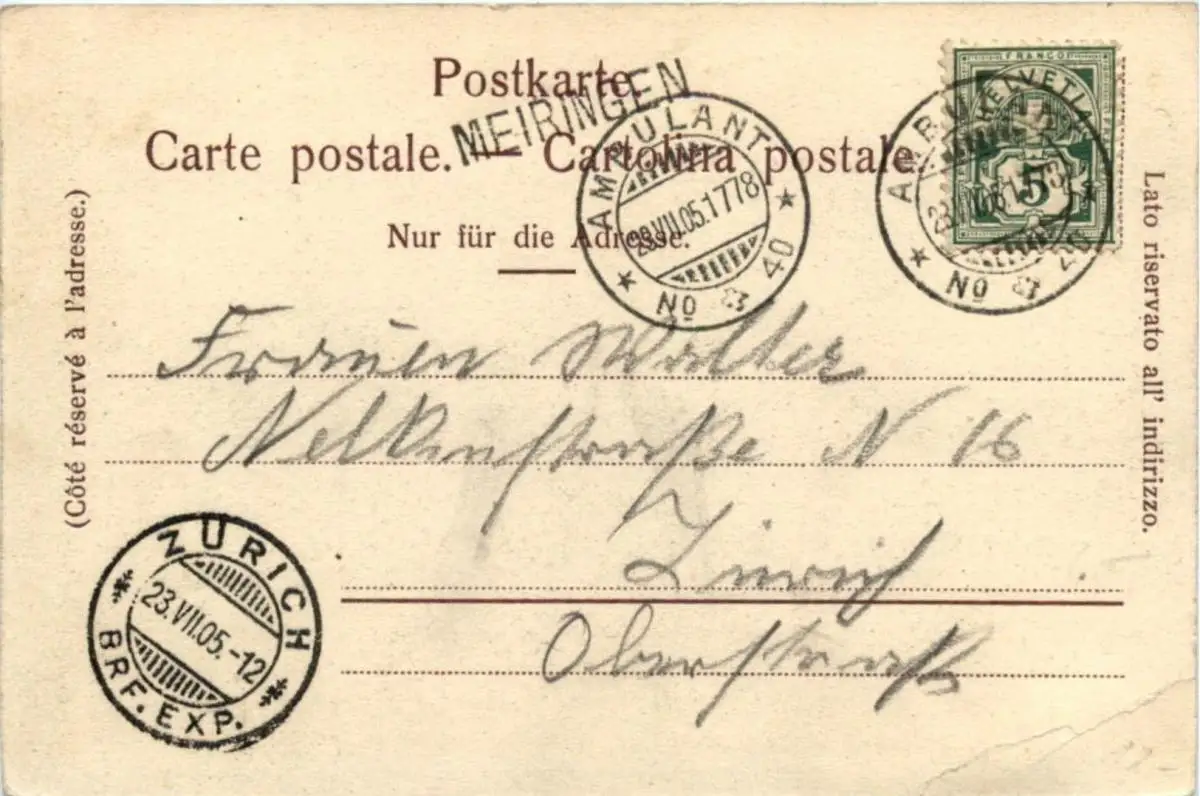 Postkarte.
MEIRINGEN
Carte postale. — Cartolina postale.
Nur für die Adresse.
(Côté réservé à l'adresse.)
Lato riservato all' indirizzo.
AMBULANT
23.VII.05.1778
No 40
FRANCO
HELVETIA
5
AMBULANT
23.VII.05.
No 40
Frauen Walter
Nelkenstraße N 16
Zürich
Oberstraß
ZÜRICH
23.VII.05.-12
BRF. EXP.